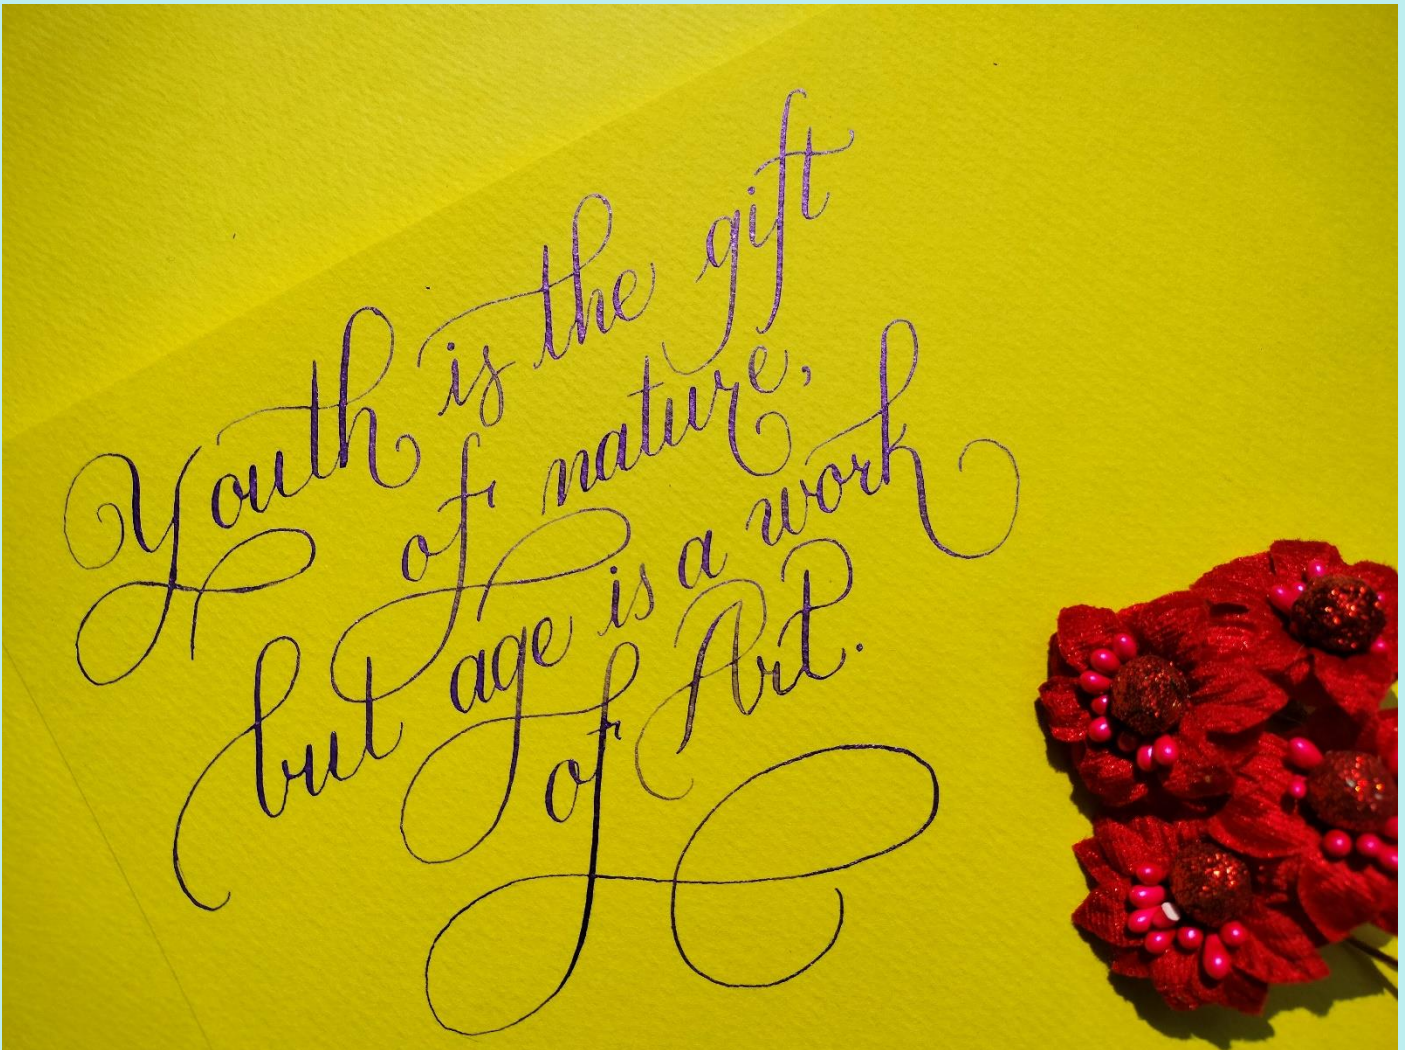 Youth is the gift
of nature,
but age is a work
of Art.